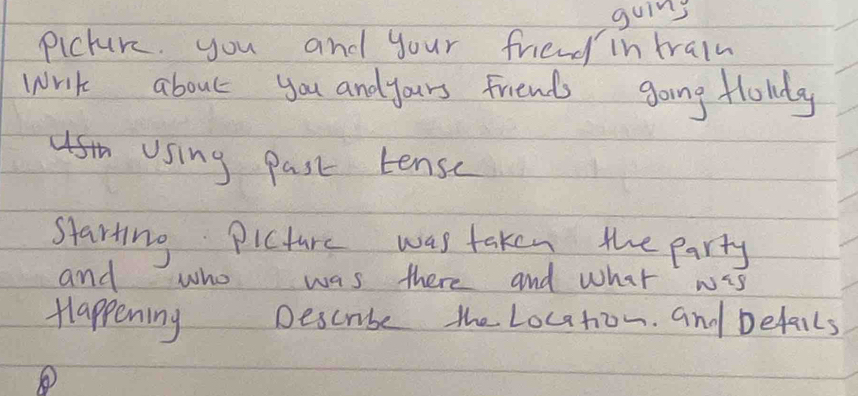 going
Picture. you and your friend in train
Write about you and yours Friends going Holiday
Using past tense
Starting Picture was taken the party
and who was there and what was
Happening Describe the Location. and Details